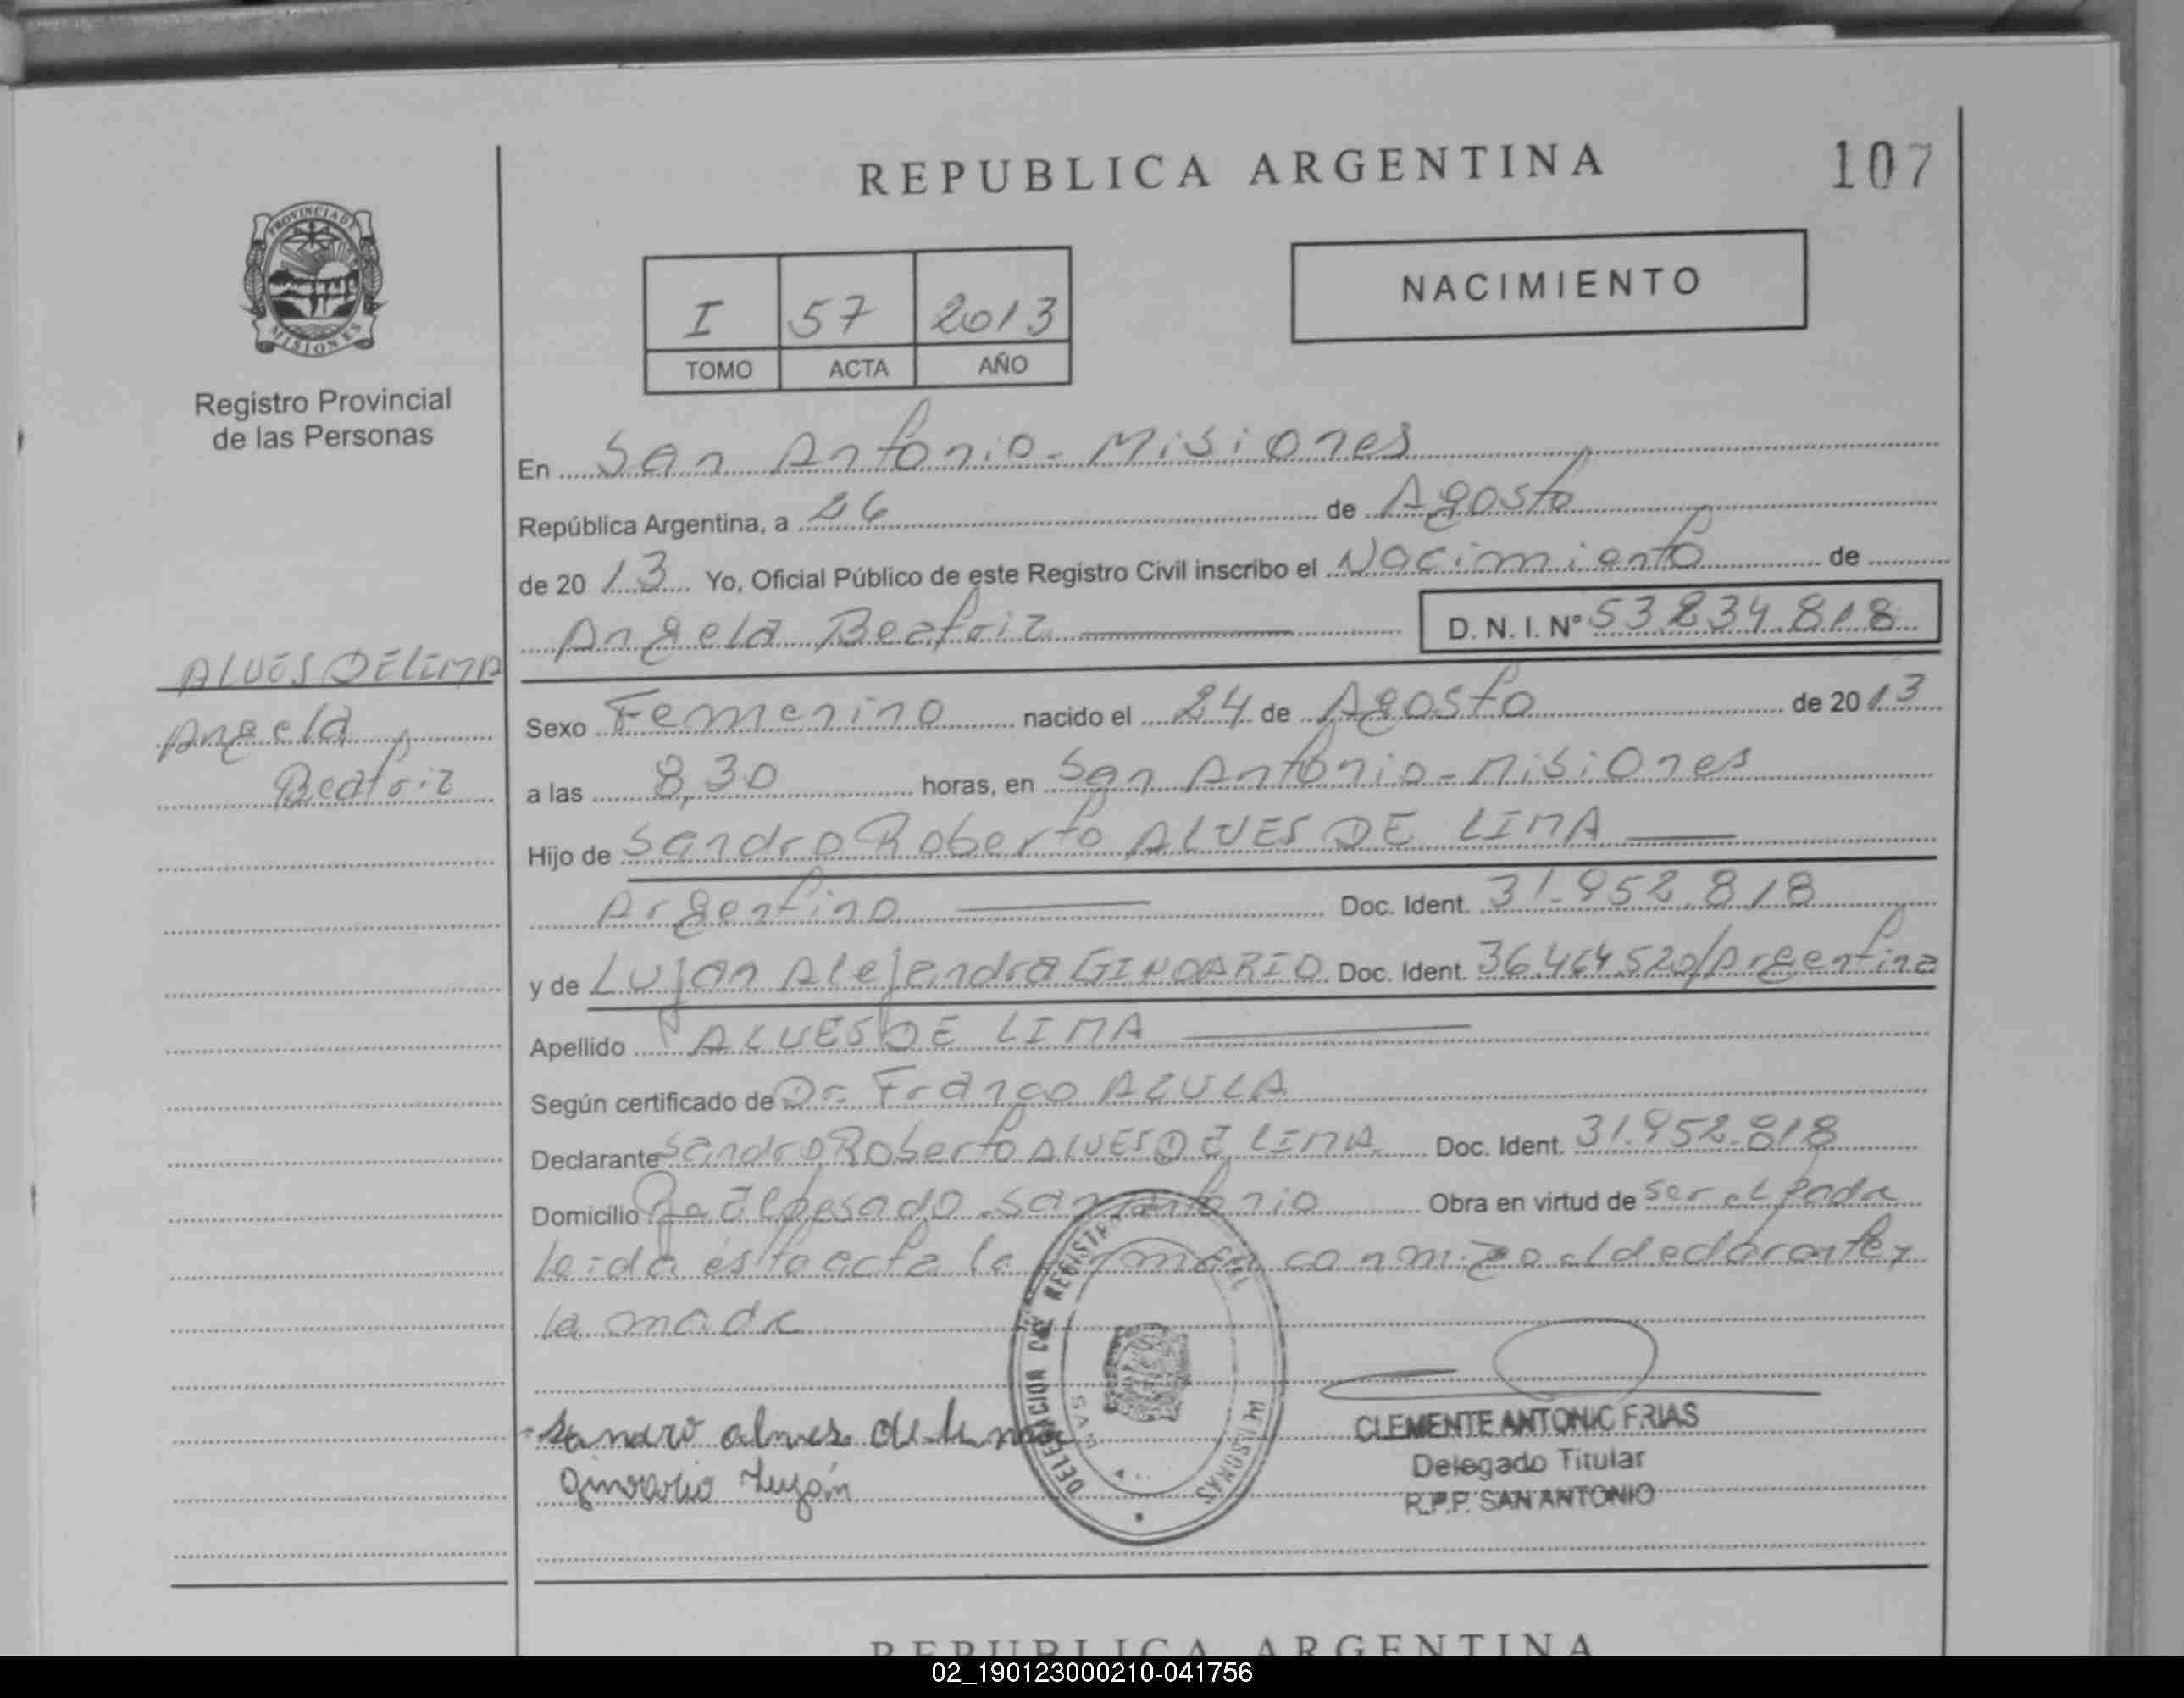 REPUBLICA ARGENTINA
107
PROVINCIA DE
MISIONES
Registro Provincial
de las Personas
I 57 2013
TOMO ACTA AÑO
NACIMIENTO
En San Antonio - Misiones
República Argentina, a 26 de Agosto
de 20 13 Yo, Oficial Público de este Registro Civil inscribo el Nacimiento de
Angela Beatriz D.N.I. Nº 53.834.818
ALVES DE LIMA
Angela
Beatriz
Sexo Femenino nacido el 24 de Agosto de 20 13
a las 8,30 horas, en San Antonio - Misiones
Hijo de Sandro Roberto ALVES DE LIMA
Argentino Doc. Ident. 31.952.818
y de Lujan Alejandra GINOARIO Doc. Ident. 36.464.520/Argentina
Apellido ALVES DE LIMA
Según certificado de Dr. Franco AZULA
Declarante Sandro Roberto ALVES DE LIMA Doc. Ident. 31.952.818
Domicilio San Antonio Obra en virtud de ser el padre
leida esta acta la firman conmigo el declarante y
la madre
Sandro alves de lima
Lujan
DELEGACION REGISTRO
PERSONAS
SAN
CLEMENTE ANTONIO FRIAS
Delegado Titular
R.P.P. SAN ANTONIO
REPUBLICA ARGENTINA
02_190123000210-041756